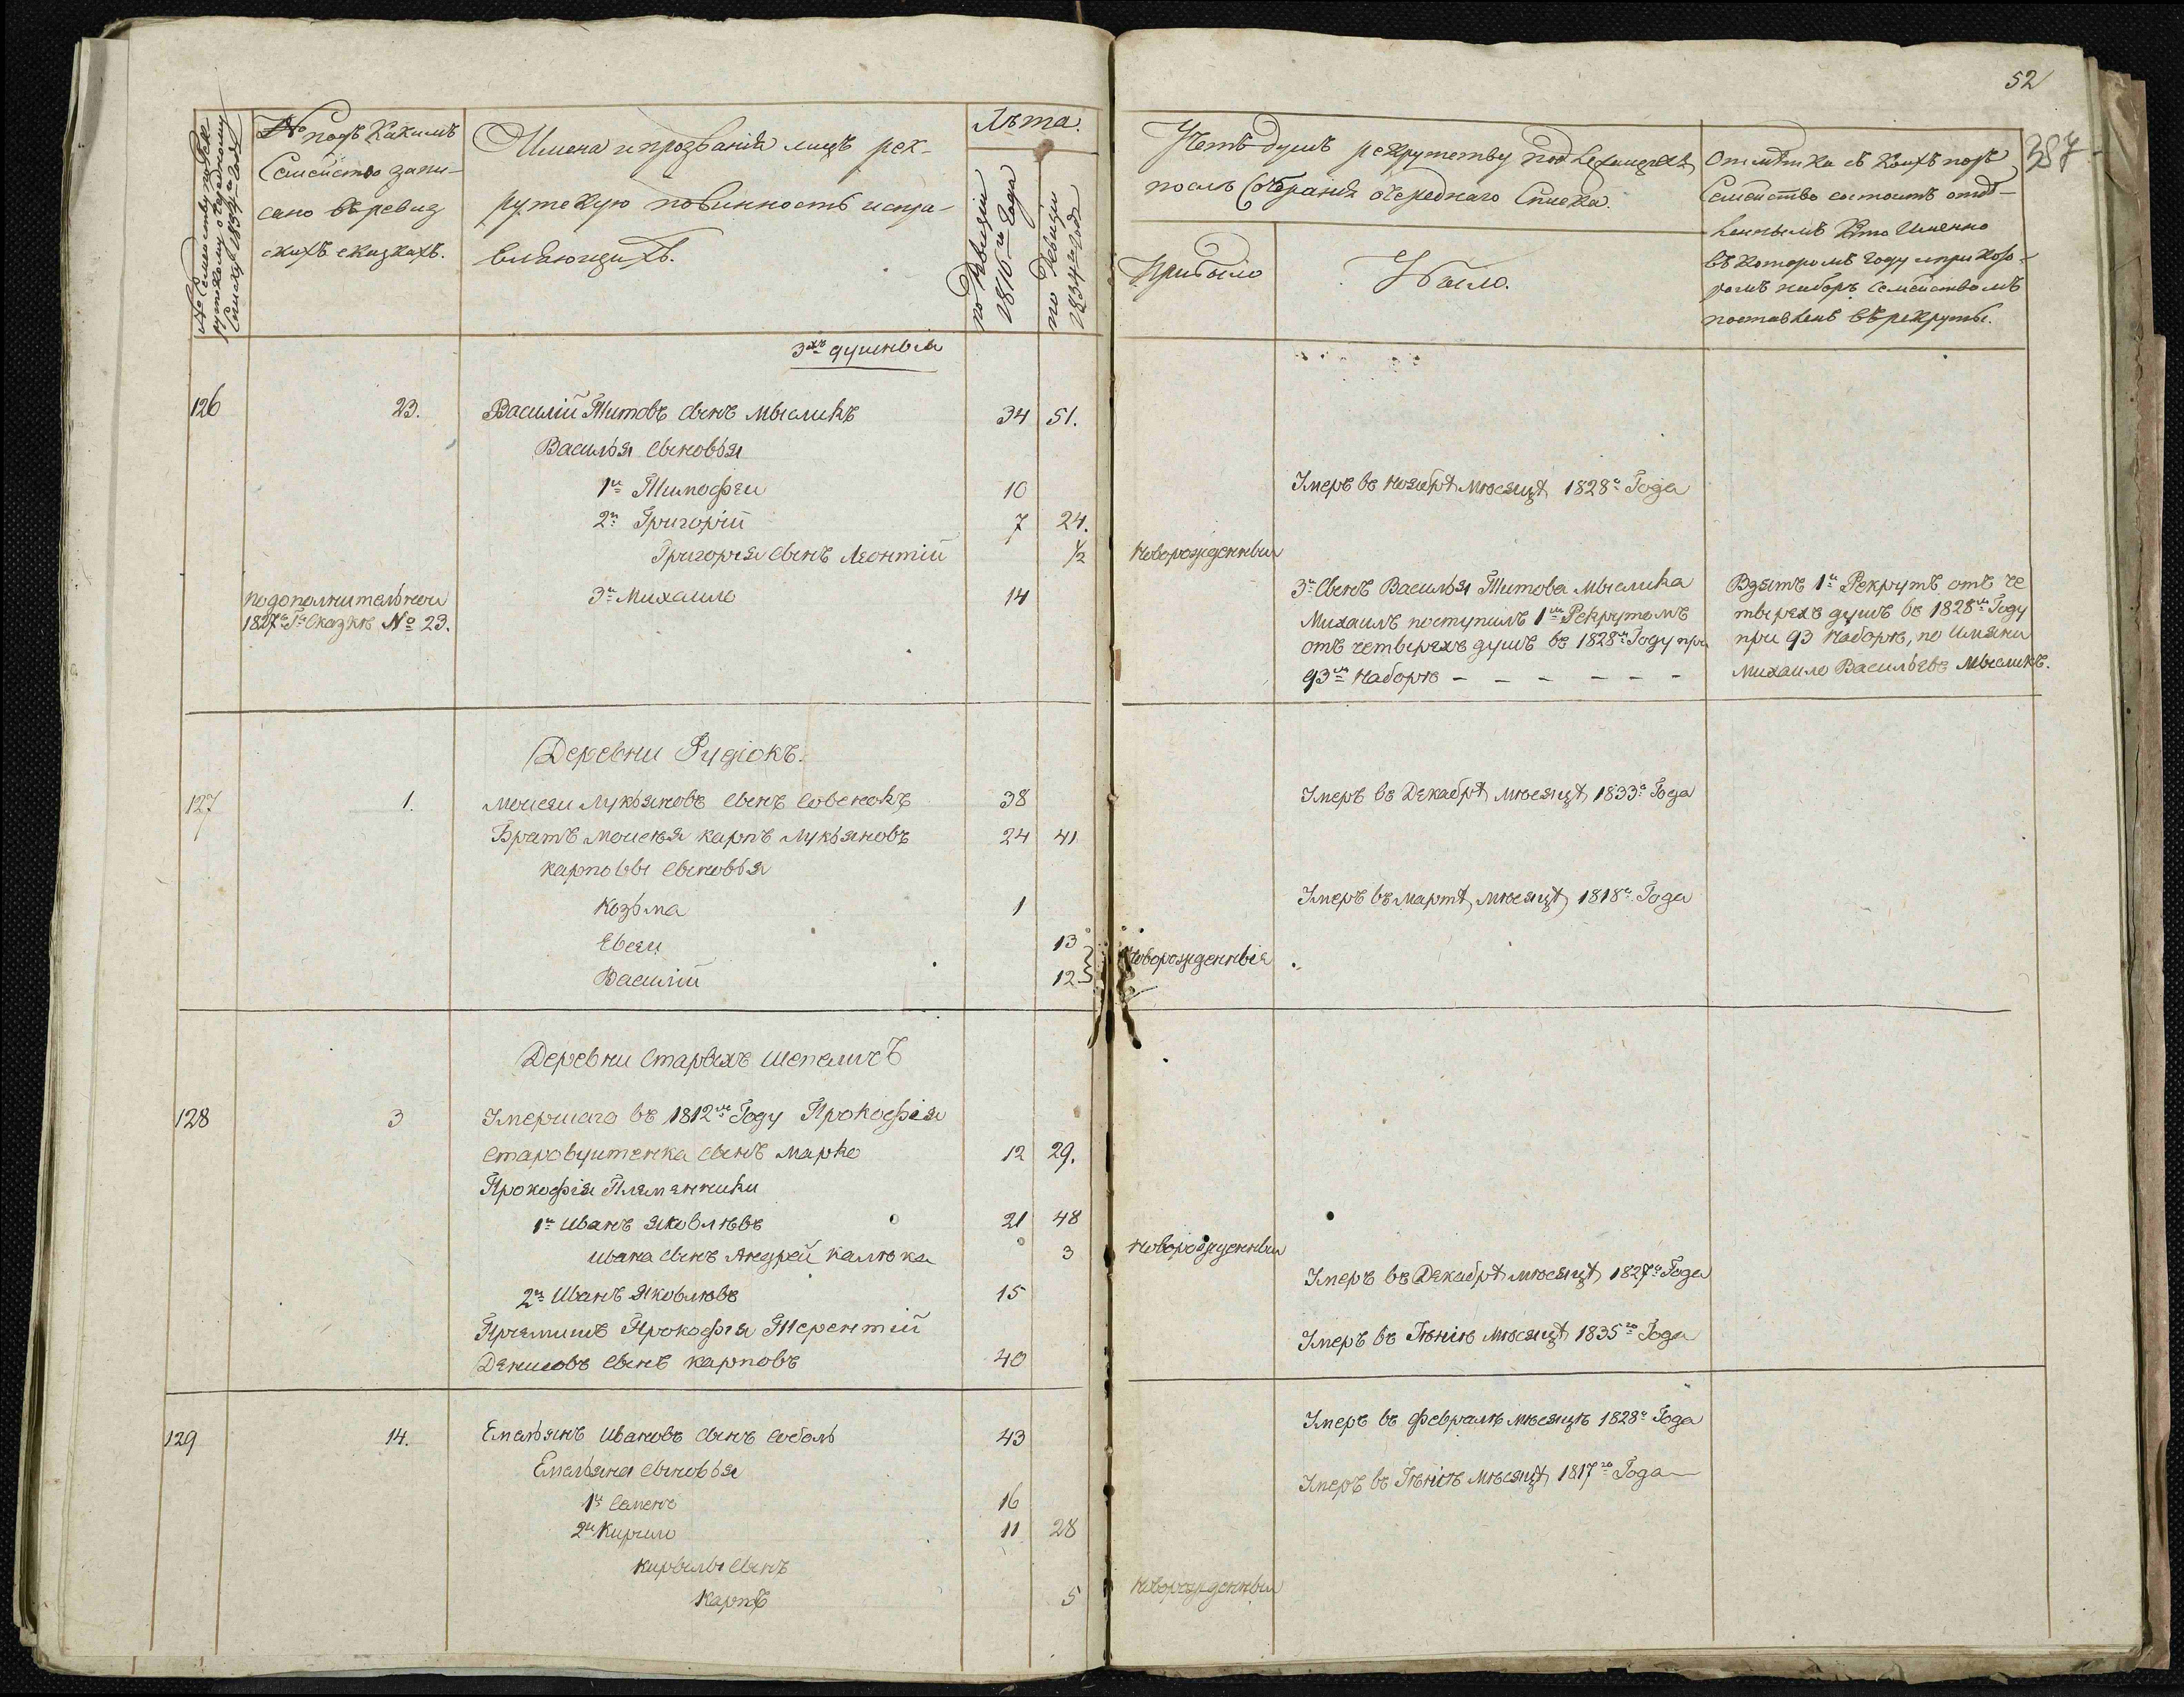 52
387
№ Семейству по рек
рутскому очередному
списку 1834го года
№ подъ Какимъ
Семейство запи-
сано въ ревиз
скихъ сказкахъ.
Имена и прозванія лицъ рек-
рутскую повинность испра-
вляющихъ.
Лѣта.
по Ревизіи
1816го Года
по Ревизіи
1834го Года
Учетъ душъ рекрутству подлежащихъ
послѣ Собранія очереднаго Списка.
Прибыло
Убыло.
Отмѣтка съ Коихъ подъ
Семейство состоитъ отдѣ-
леннымъ Кто Именно
въ Которомъ году и при Кото-
ромъ наборѣ Семействомъ
поставленъ въ рекруты.
3хъ душныя
126 23. Василій Титовъ сынъ мысликъ 34 51.
Василья сыновья
1й Тимофеи 10 Умеръ въ ноябрѣ мѣсяцѣ 1828го Года
2й Григорій 7 24.
Григорья сынъ Леонтій ½ новорожденныи
подополнительнои 3й Михаило 14
1827го Гда Сказкѣ № 23.
3й Сынъ Василья Титова мыслика
Михаилъ поступилъ 1мъ Рекрутомъ
отъ четырехъ душъ въ 1828мъ Году при
93мъ наборѣ – – – – – –
Взятъ 1й Рекрутъ отъ че
тырехъ душъ въ 1828мъ Году
при 93 наборѣ, по имяни
Михаило Васильевъ Мысликъ.
Деревни Рудіокъ.
127 1. моисеи Лукьяновъ сынъ совенокъ 38 Умеръ въ Декабрѣ мѣсяцѣ 1833го Года
Братъ моисея карпъ Лукьяновъ 24 41
карповы сыновья
козьма 1 Умеръ въ мартѣ мѣсяцѣ 1818го Года
Евсеи 13
новорожденныя
Василій 12
Деревни Старыхъ шепеличъ
128 3 Умершаго въ 1812мъ Году Прокофія
старовуитенка сынъ марко 12 29.
Прокофія Племянники
1й иванъ яковлевъ 21 48
ивана сынъ Андрей калюка 3 новорожденныи
2й Иванъ Яковлевъ 15 Умеръ въ Декабрѣ мѣсяцѣ 1827го Года
Пріемишъ Прокофія Терентій
Денисовъ сынъ карповъ 40 Умеръ въ Іюнѣ мѣсяцѣ 1835го Года
129 14. Емельянъ Ивановъ сынъ соболь 43 Умеръ въ февралѣ мѣсяцѣ 1828го Года
Емельяна сыновья
1й семенъ 16 Умеръ въ Іюнѣ мѣсяцѣ 1817го Года
2й Кирило 11 28
кирылы сынъ
карпъ 5 новорожденныи